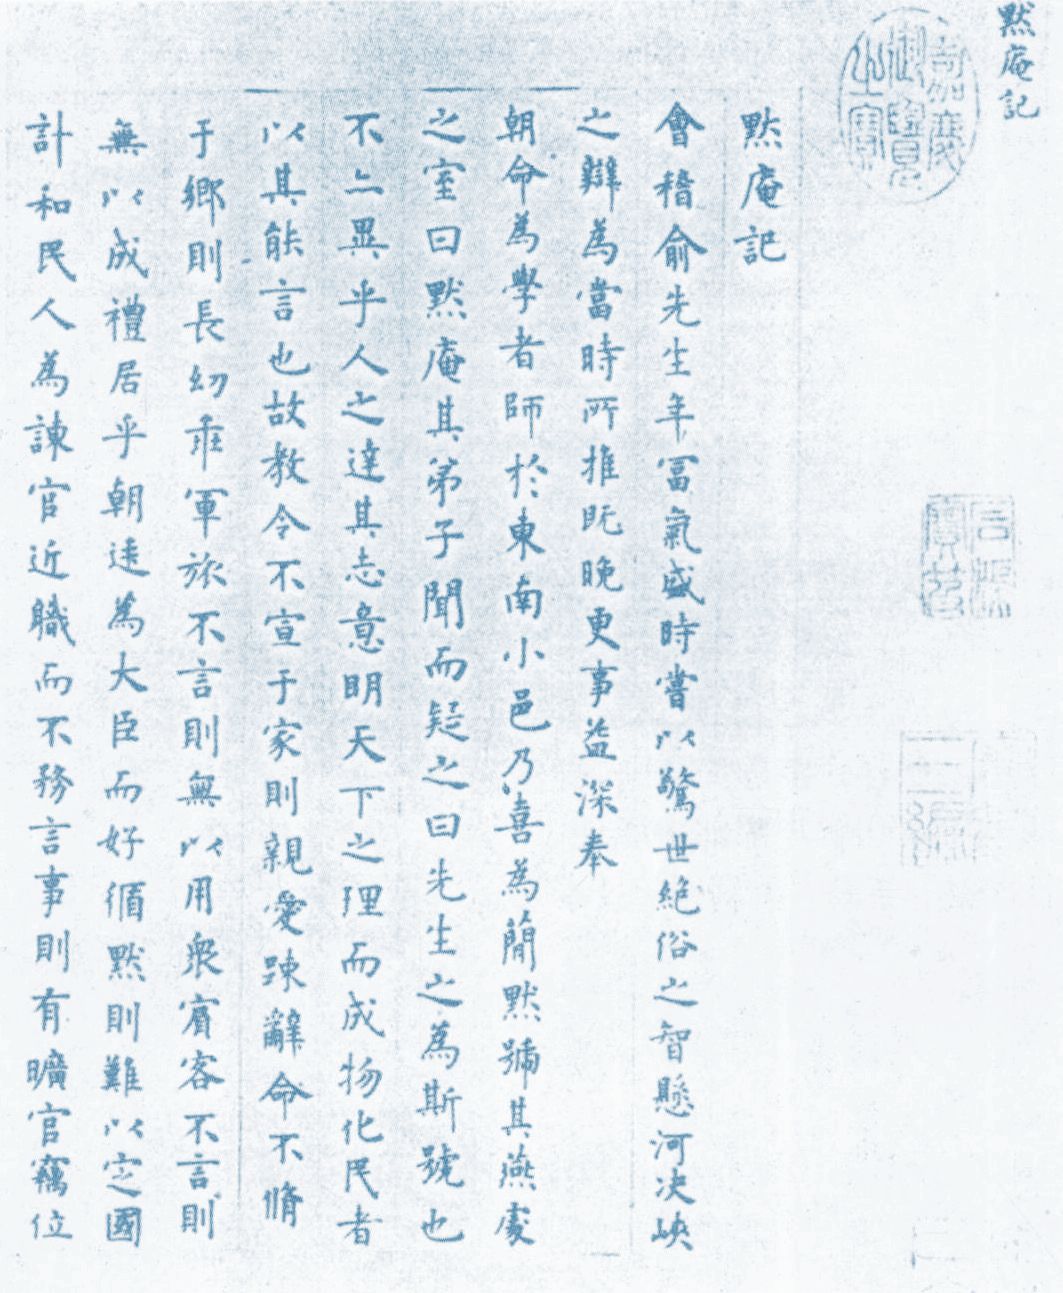 默庵記
嘉慶御覽之寶
默庵記
會稽俞先生年富氣盛時嘗以驚世絕俗之智懸河決峽
之辯為當時所推既晚更事益深奉
朝命為學者師於東南小邑乃喜為簡默號其燕處
之室曰默庵其弟子聞而疑之曰先生之為斯號也
不亦異乎人之達其志意明天下之理而成物化民者
以其能言也故教令不宣于家則親愛踈辭命不脩
于鄉則長幼乖軍旅不言則無以用衆賓客不言則
無以成禮居乎朝逺為大臣而好循默則難以定國
計和民人為諌官近職而不務言事則有曠官竊位